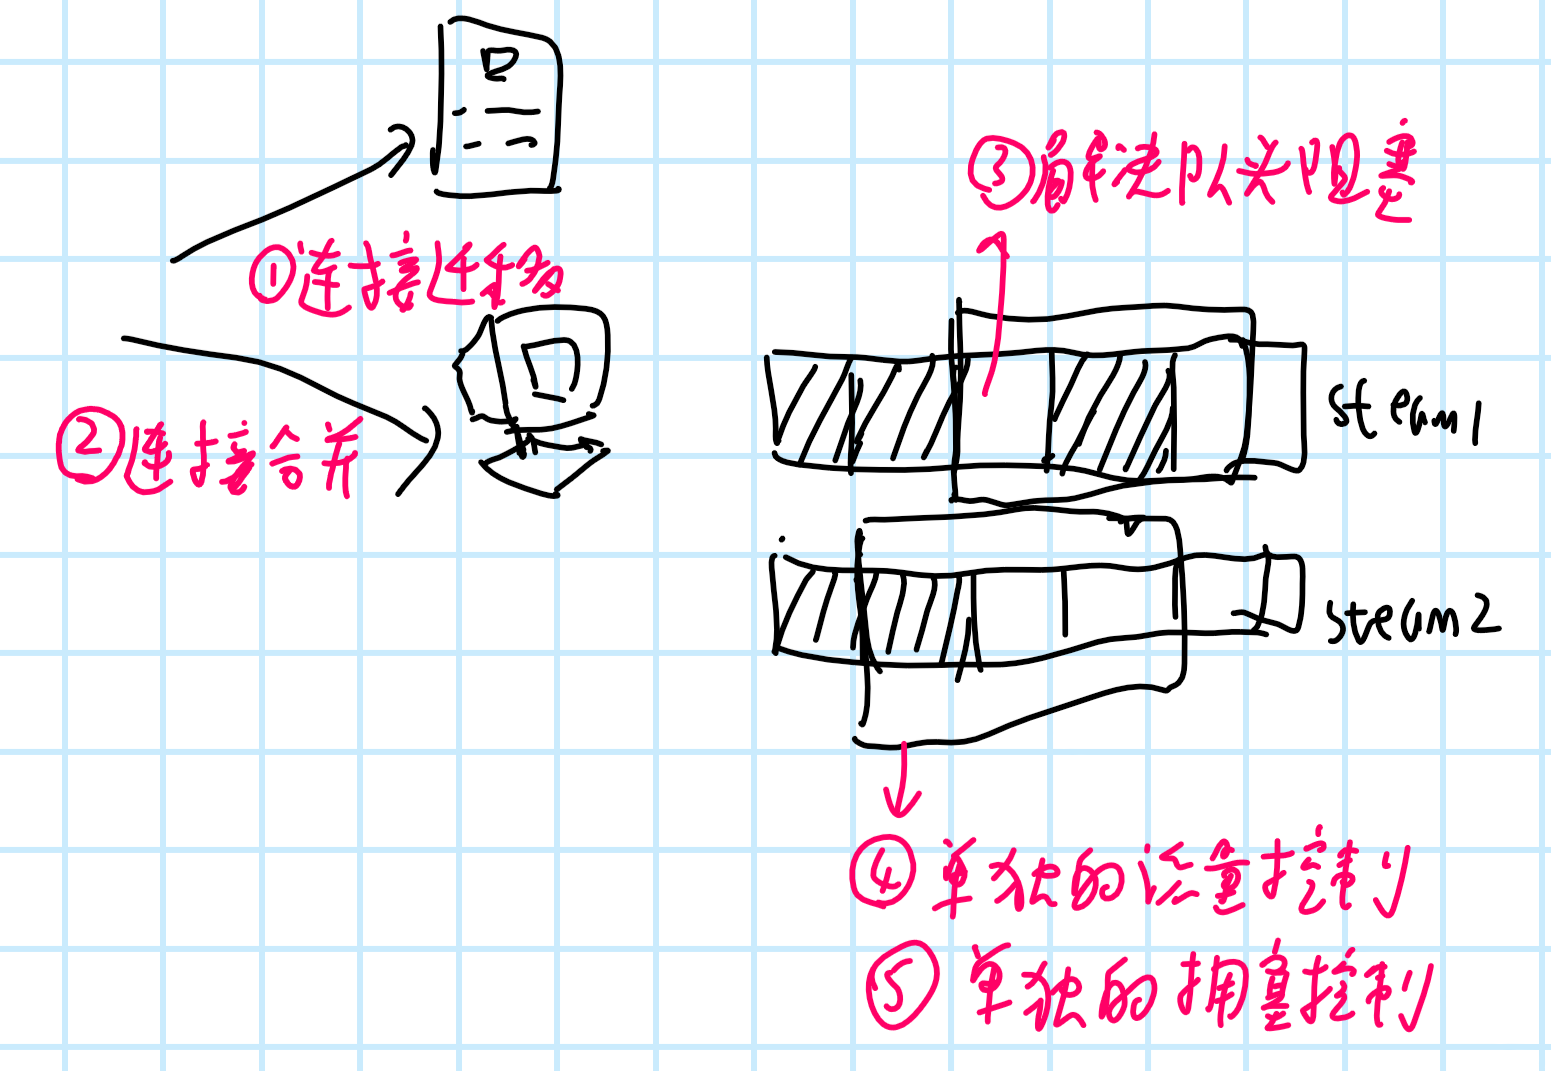 ①连接迁移
②连接合并
③解决队头阻塞
steam1
steam2
④单独的流量控制
⑤单独的拥塞控制